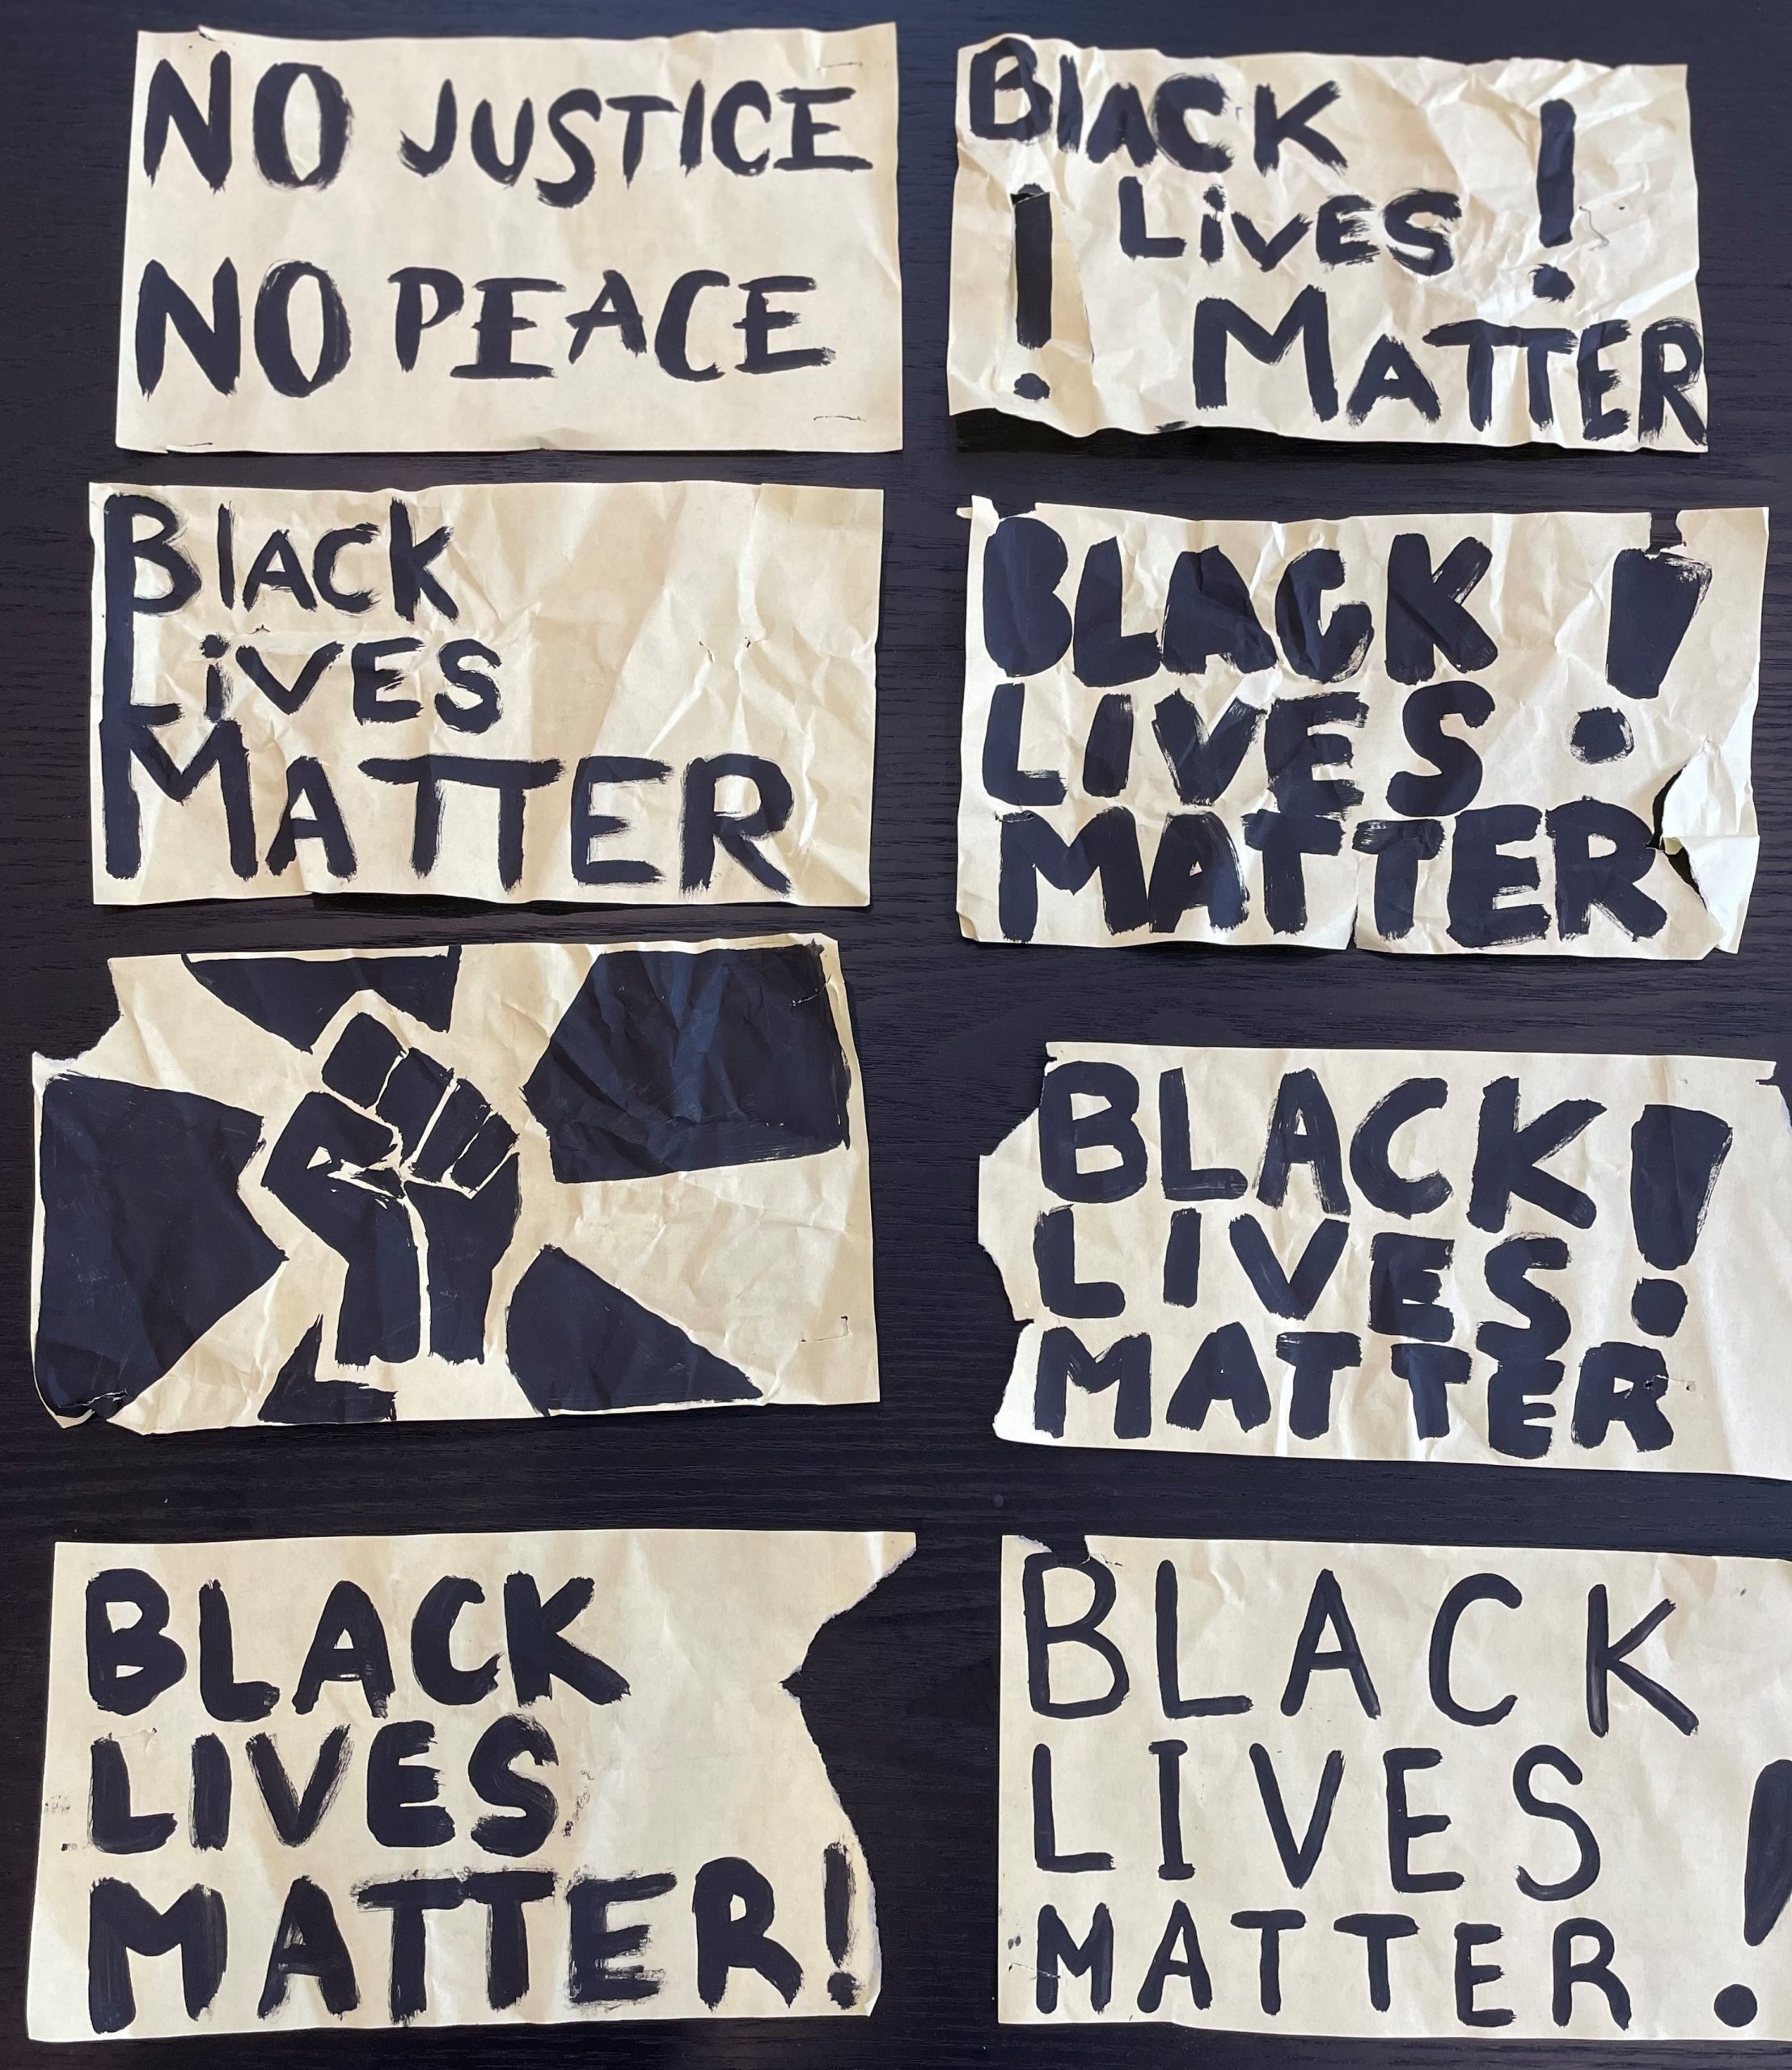 NO JUSTICE
NO PEACE
BlACK
LiVES !
! MATTER
BlACk
LiVES
MATTER
BLACK !
LIVES
MATTER
BLACK!
LIVES
MATTER
BLACK
LIVES
MATTER!
BLACK
LIVES
MATTER!